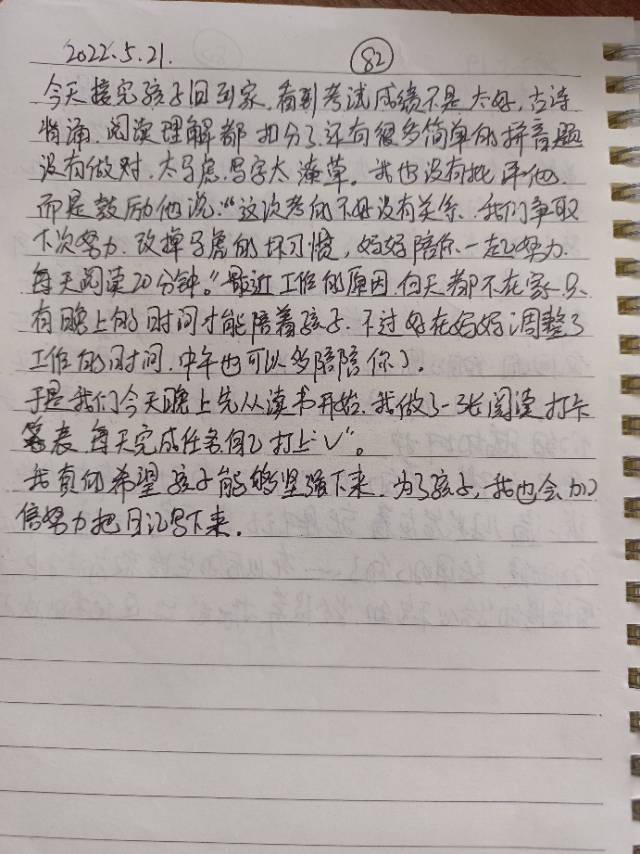 2022.5.21. 82
今天接完孩子回到家,看到考试成绩不是太好,古诗
背诵.阅读理解都扣分了.还有很多简单的拼音题
没有做对.太马虑.写字太潦草。我也没有批评他.
而是鼓励他说:“这次考的不好没有关系.我们争取
下次努力.改掉马虑的坏习惯,妈妈陪你一起努力.
每天阅读20分钟。”最近工作的原因白天都不在家.只
有晚上的时间才能陪着孩子.不过好在妈妈调整了
工作的时间.中午也可以多陪陪你了。
于是我们今天晚上先从读书开始.我做了一张阅读打卡
表.每天完成任务自己打上“V”。
我真的希望孩子能够坚强下来.为了孩子,我也会加
倍努力把日记写下来.